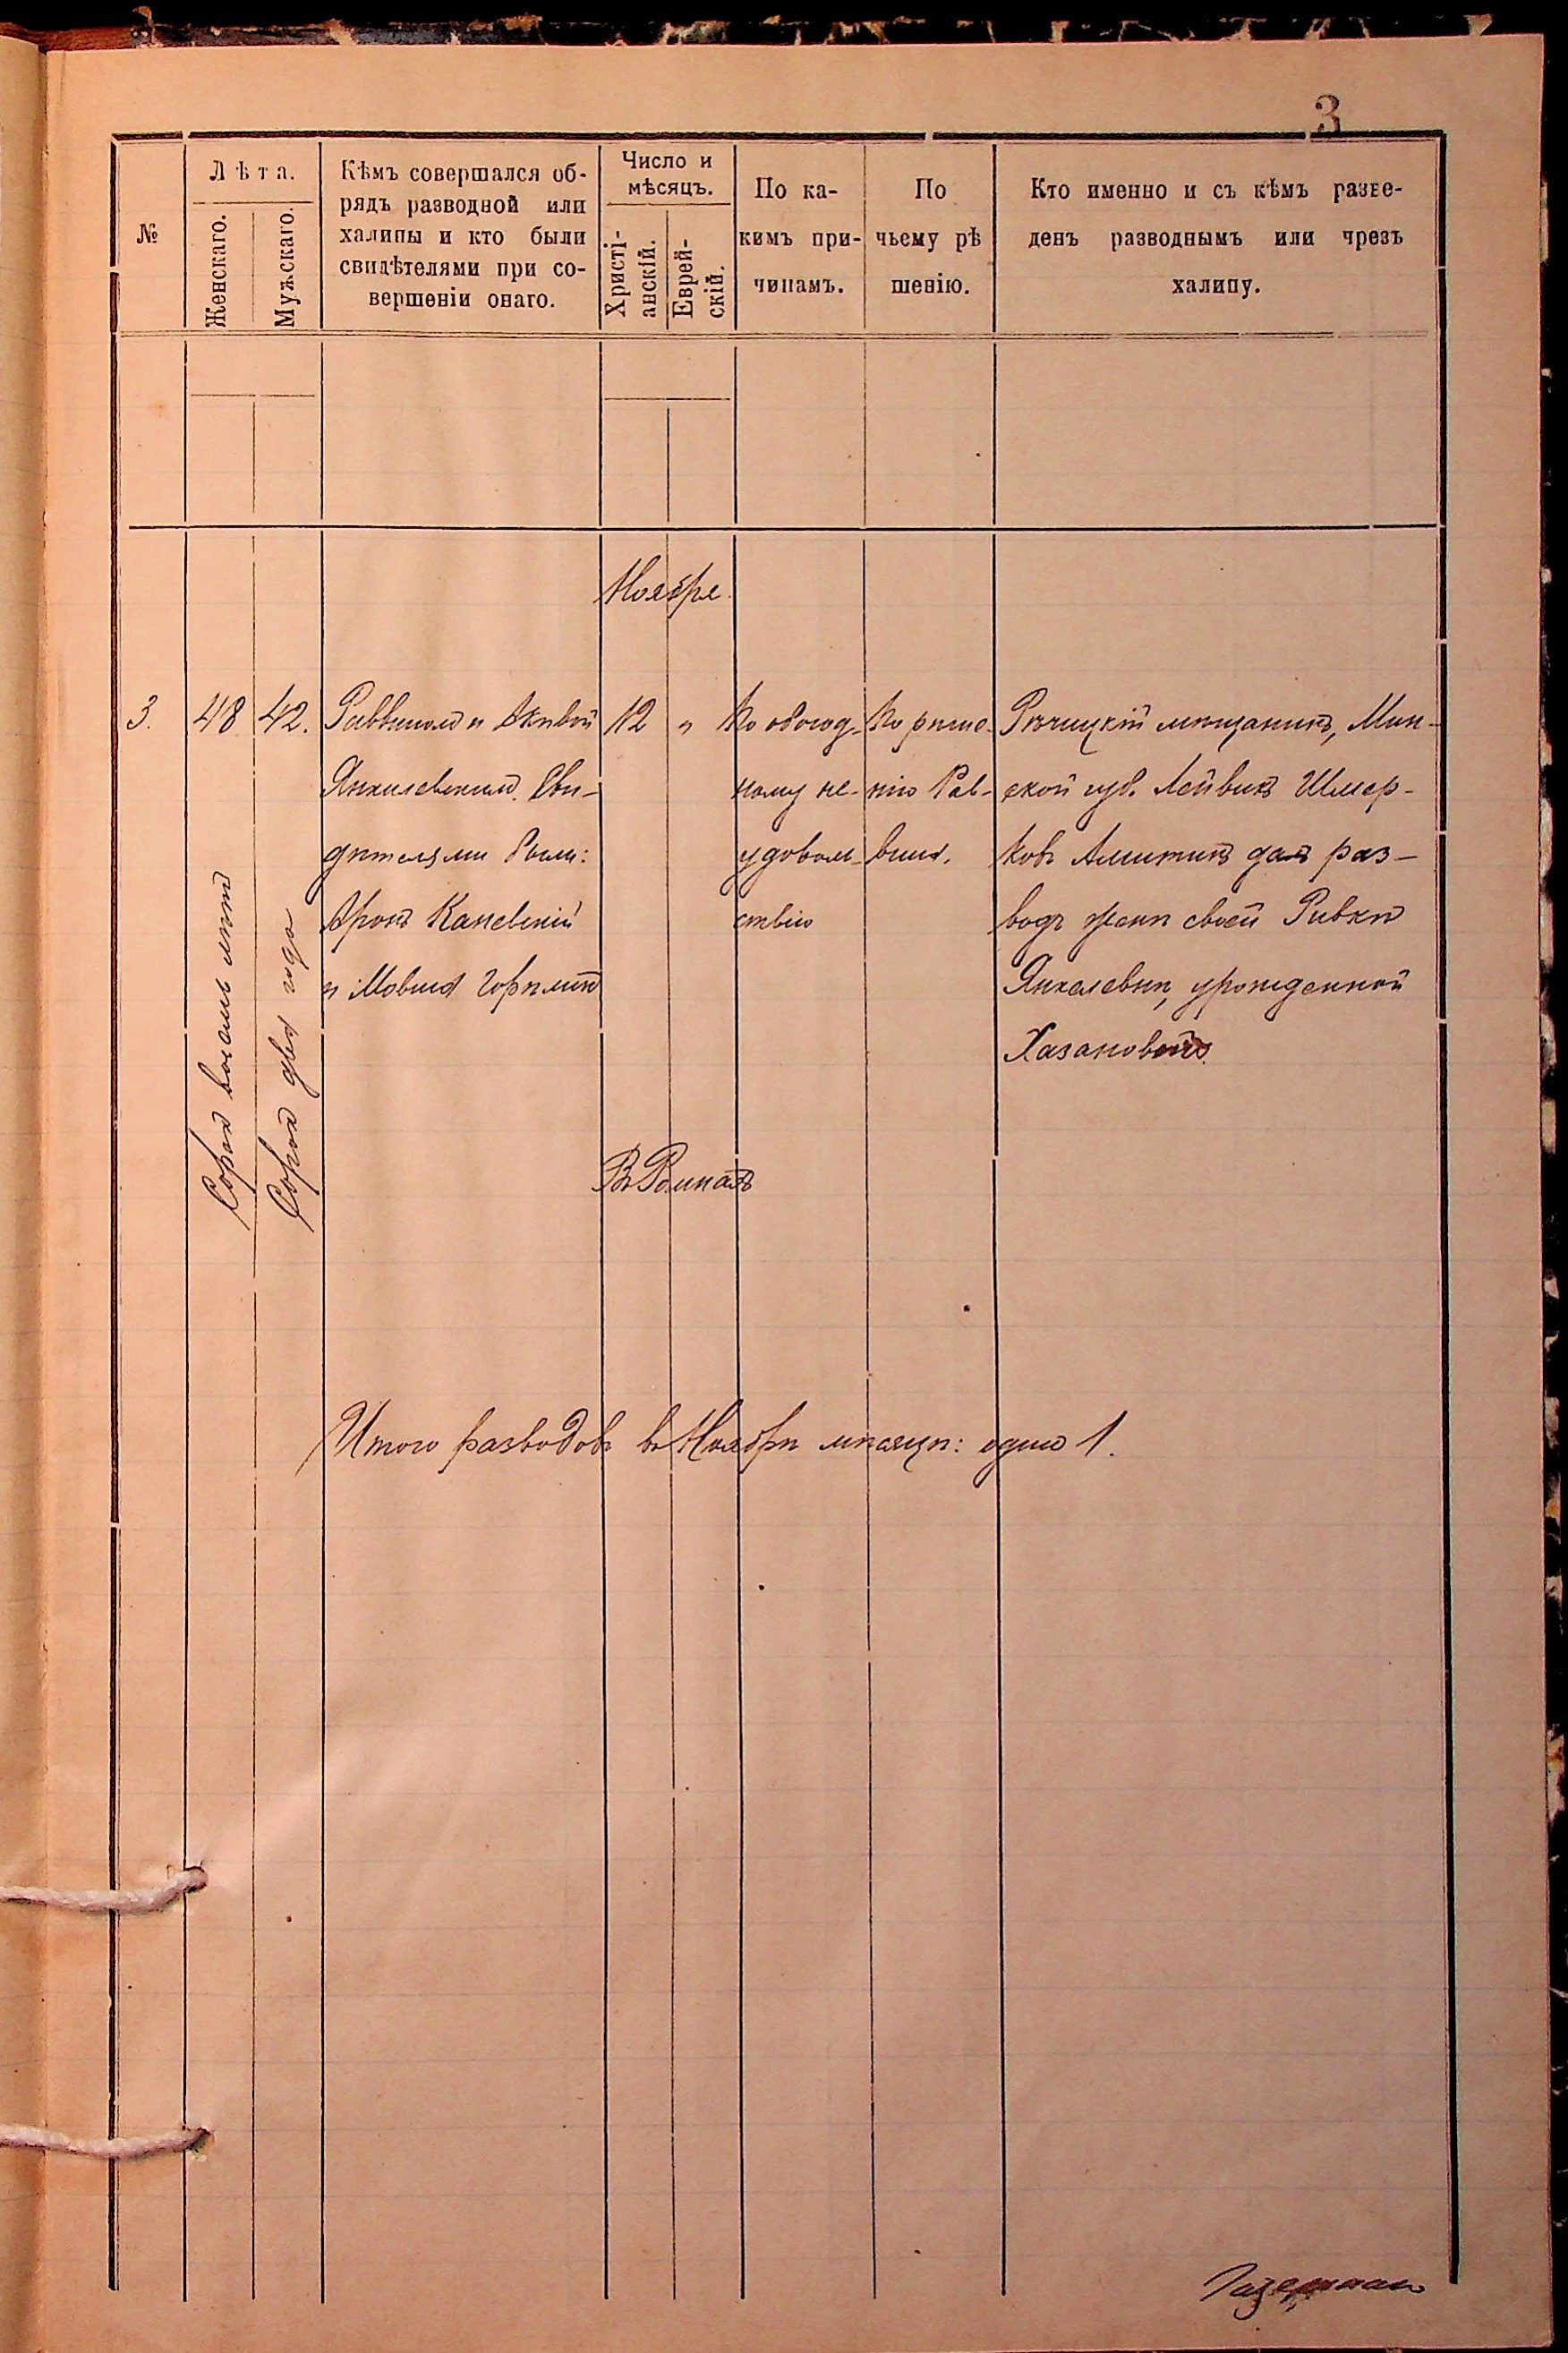 3
№
Лѣта.
Женскаго.
Мужскаго.
Кѣмъ совершался об-
рядъ разводной или
халицы и кто были
свидѣтелями при со-
вершеніи онаго.
Число и
мѣсяцъ.
Христі-
анскій.
Еврей-
скій.
По ка-
кимъ при-
чинамъ.
По
чьему рѣ
шенію.
Кто именно и съ кѣмъ разве-
денъ разводнымъ или чрезъ
халицу.
Ноябре
3.
48
Сорокъ восемь лѣтъ
42.
Сорокъ два года
Раввиномъ Акивой
Янкелевичемъ. Сви-
дѣтелями были:
Аронъ Каневскій
и Мовша Горѣликъ
12
"
По обоюд-
ному не-
удоволь-
ствію
По рѣше-
нію Рав-
вина.
Рѣчицкій мѣщанинъ, Мин-
ской губ. Лейвикъ Шмер-
ковъ Амитинъ далъ раз-
водъ женѣ своей Ривкѣ
Янкелевнѣ, урожденной
Хазановой.
Въ Ромнахъ
Итого разводовъ въ Ноябрѣ мѣсяцѣ: одинъ 1.